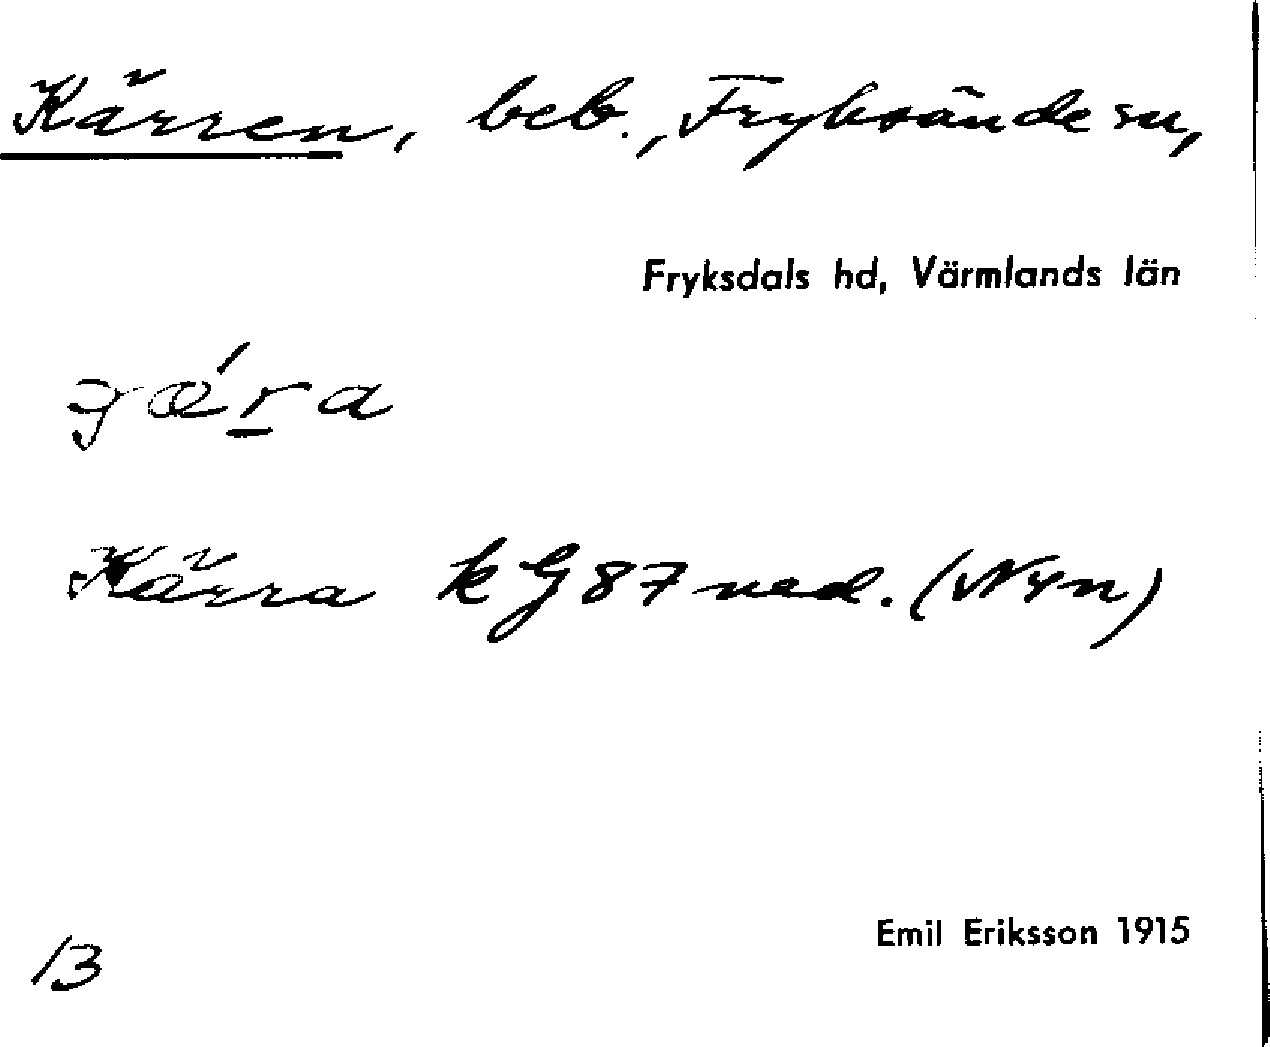 Kärren, beb., Fryksände sn,
Fryksdals hd, Värmlands län
Kärra k G 87 ned. (Nyn)
Emil Eriksson 1915
13